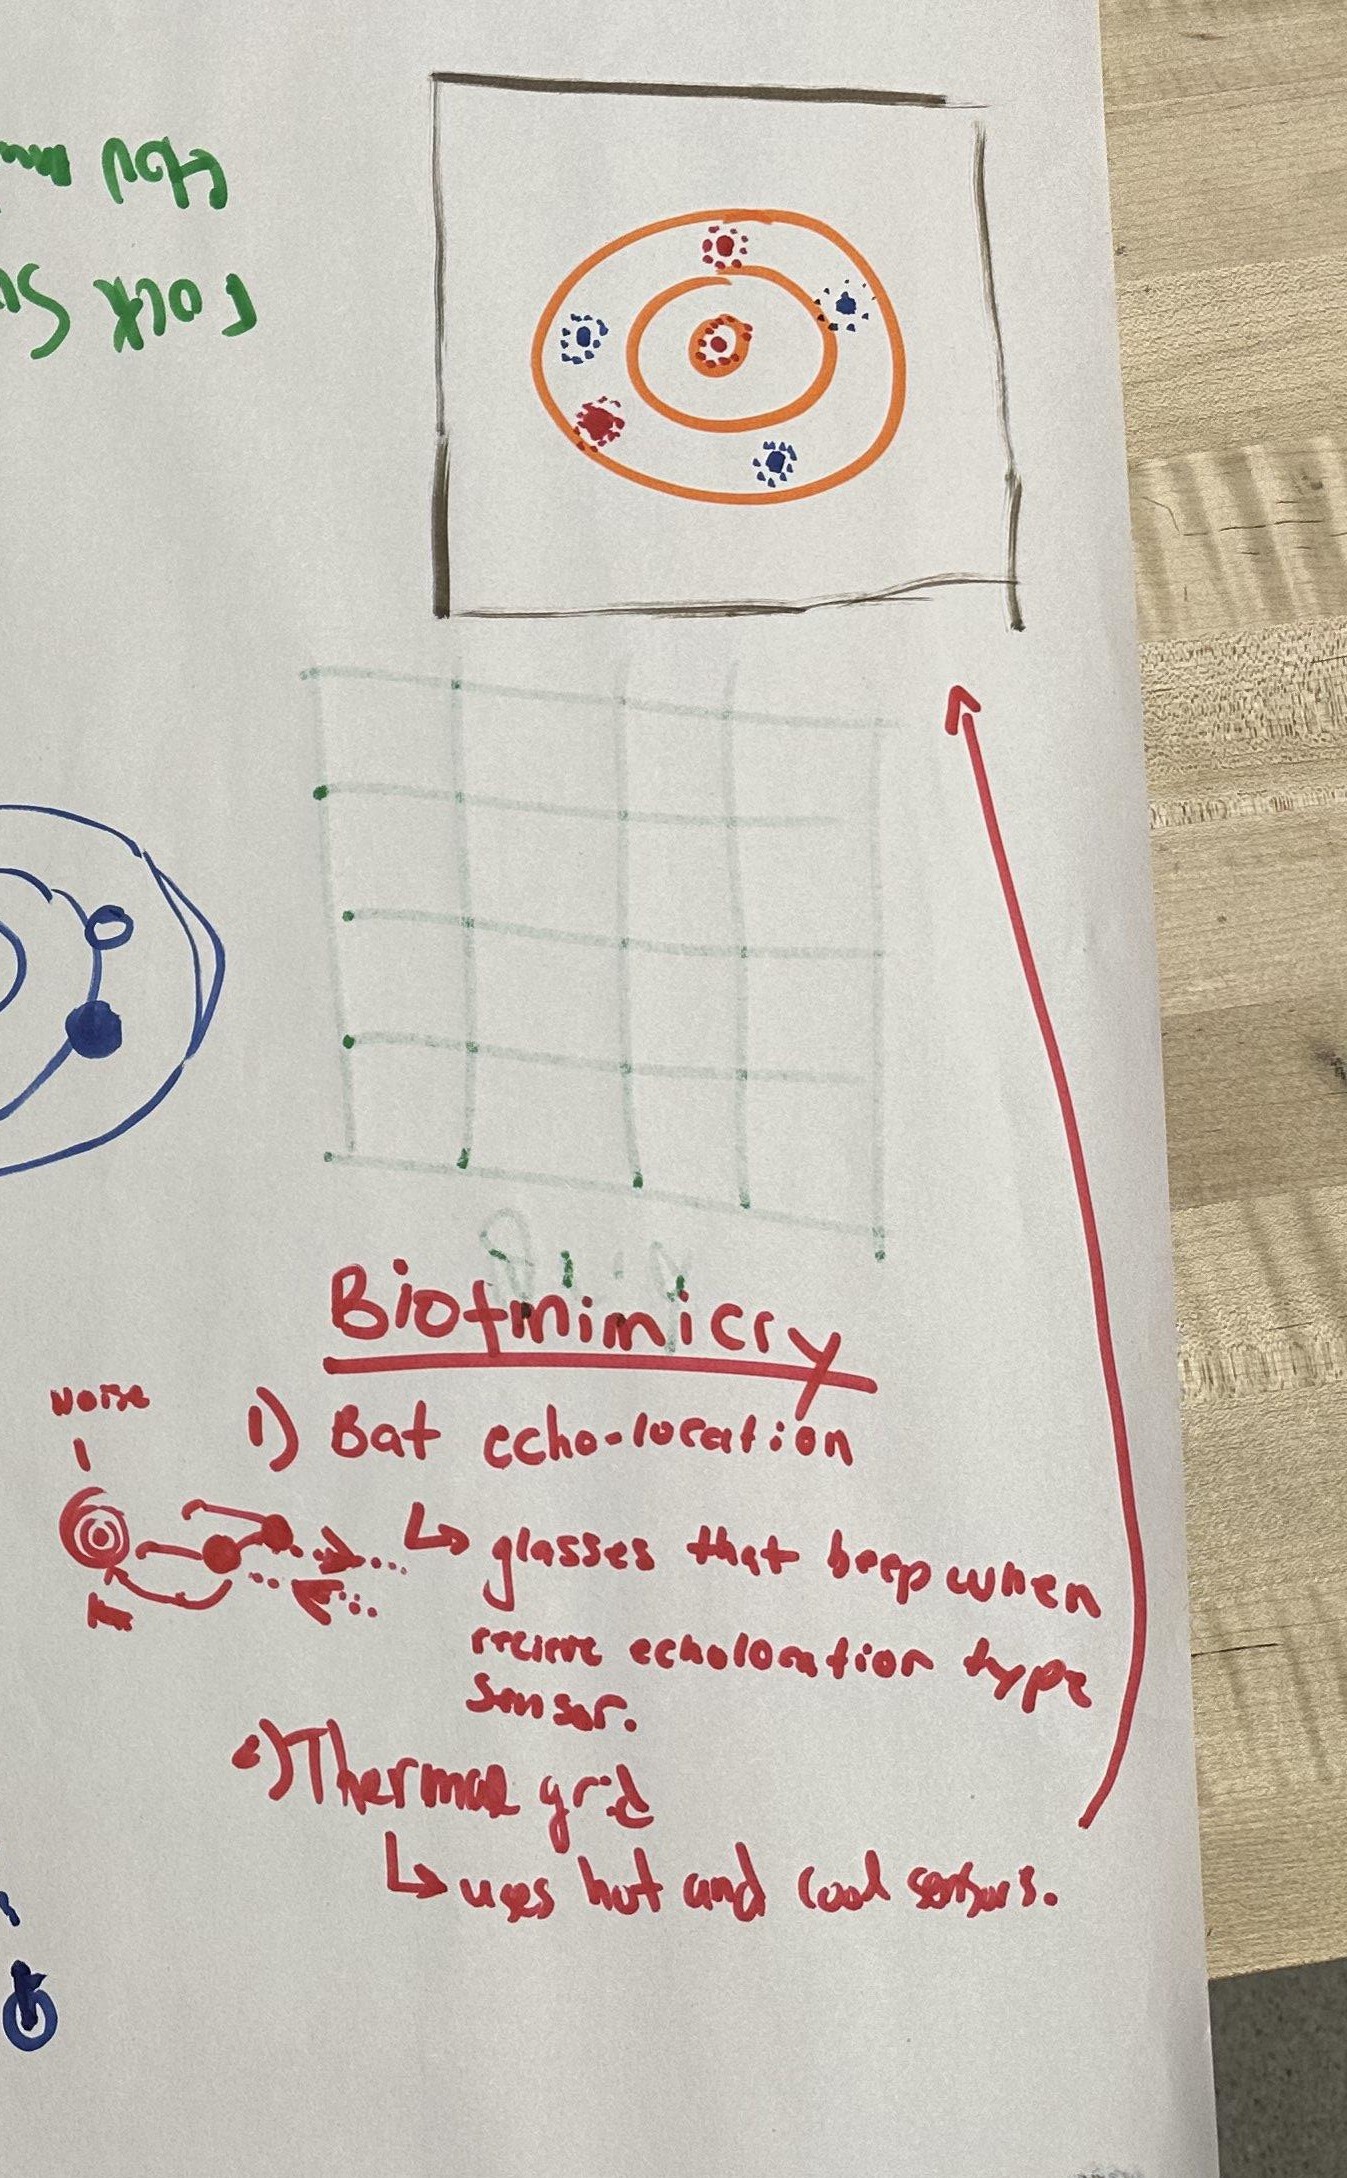 rock
Biotmimicry
Noise
1) Bat echo-location
↳ glasses that beep when
recieve echolocation type
sensor.
2) Thermal grid
↳ uses hot and cool sensors.